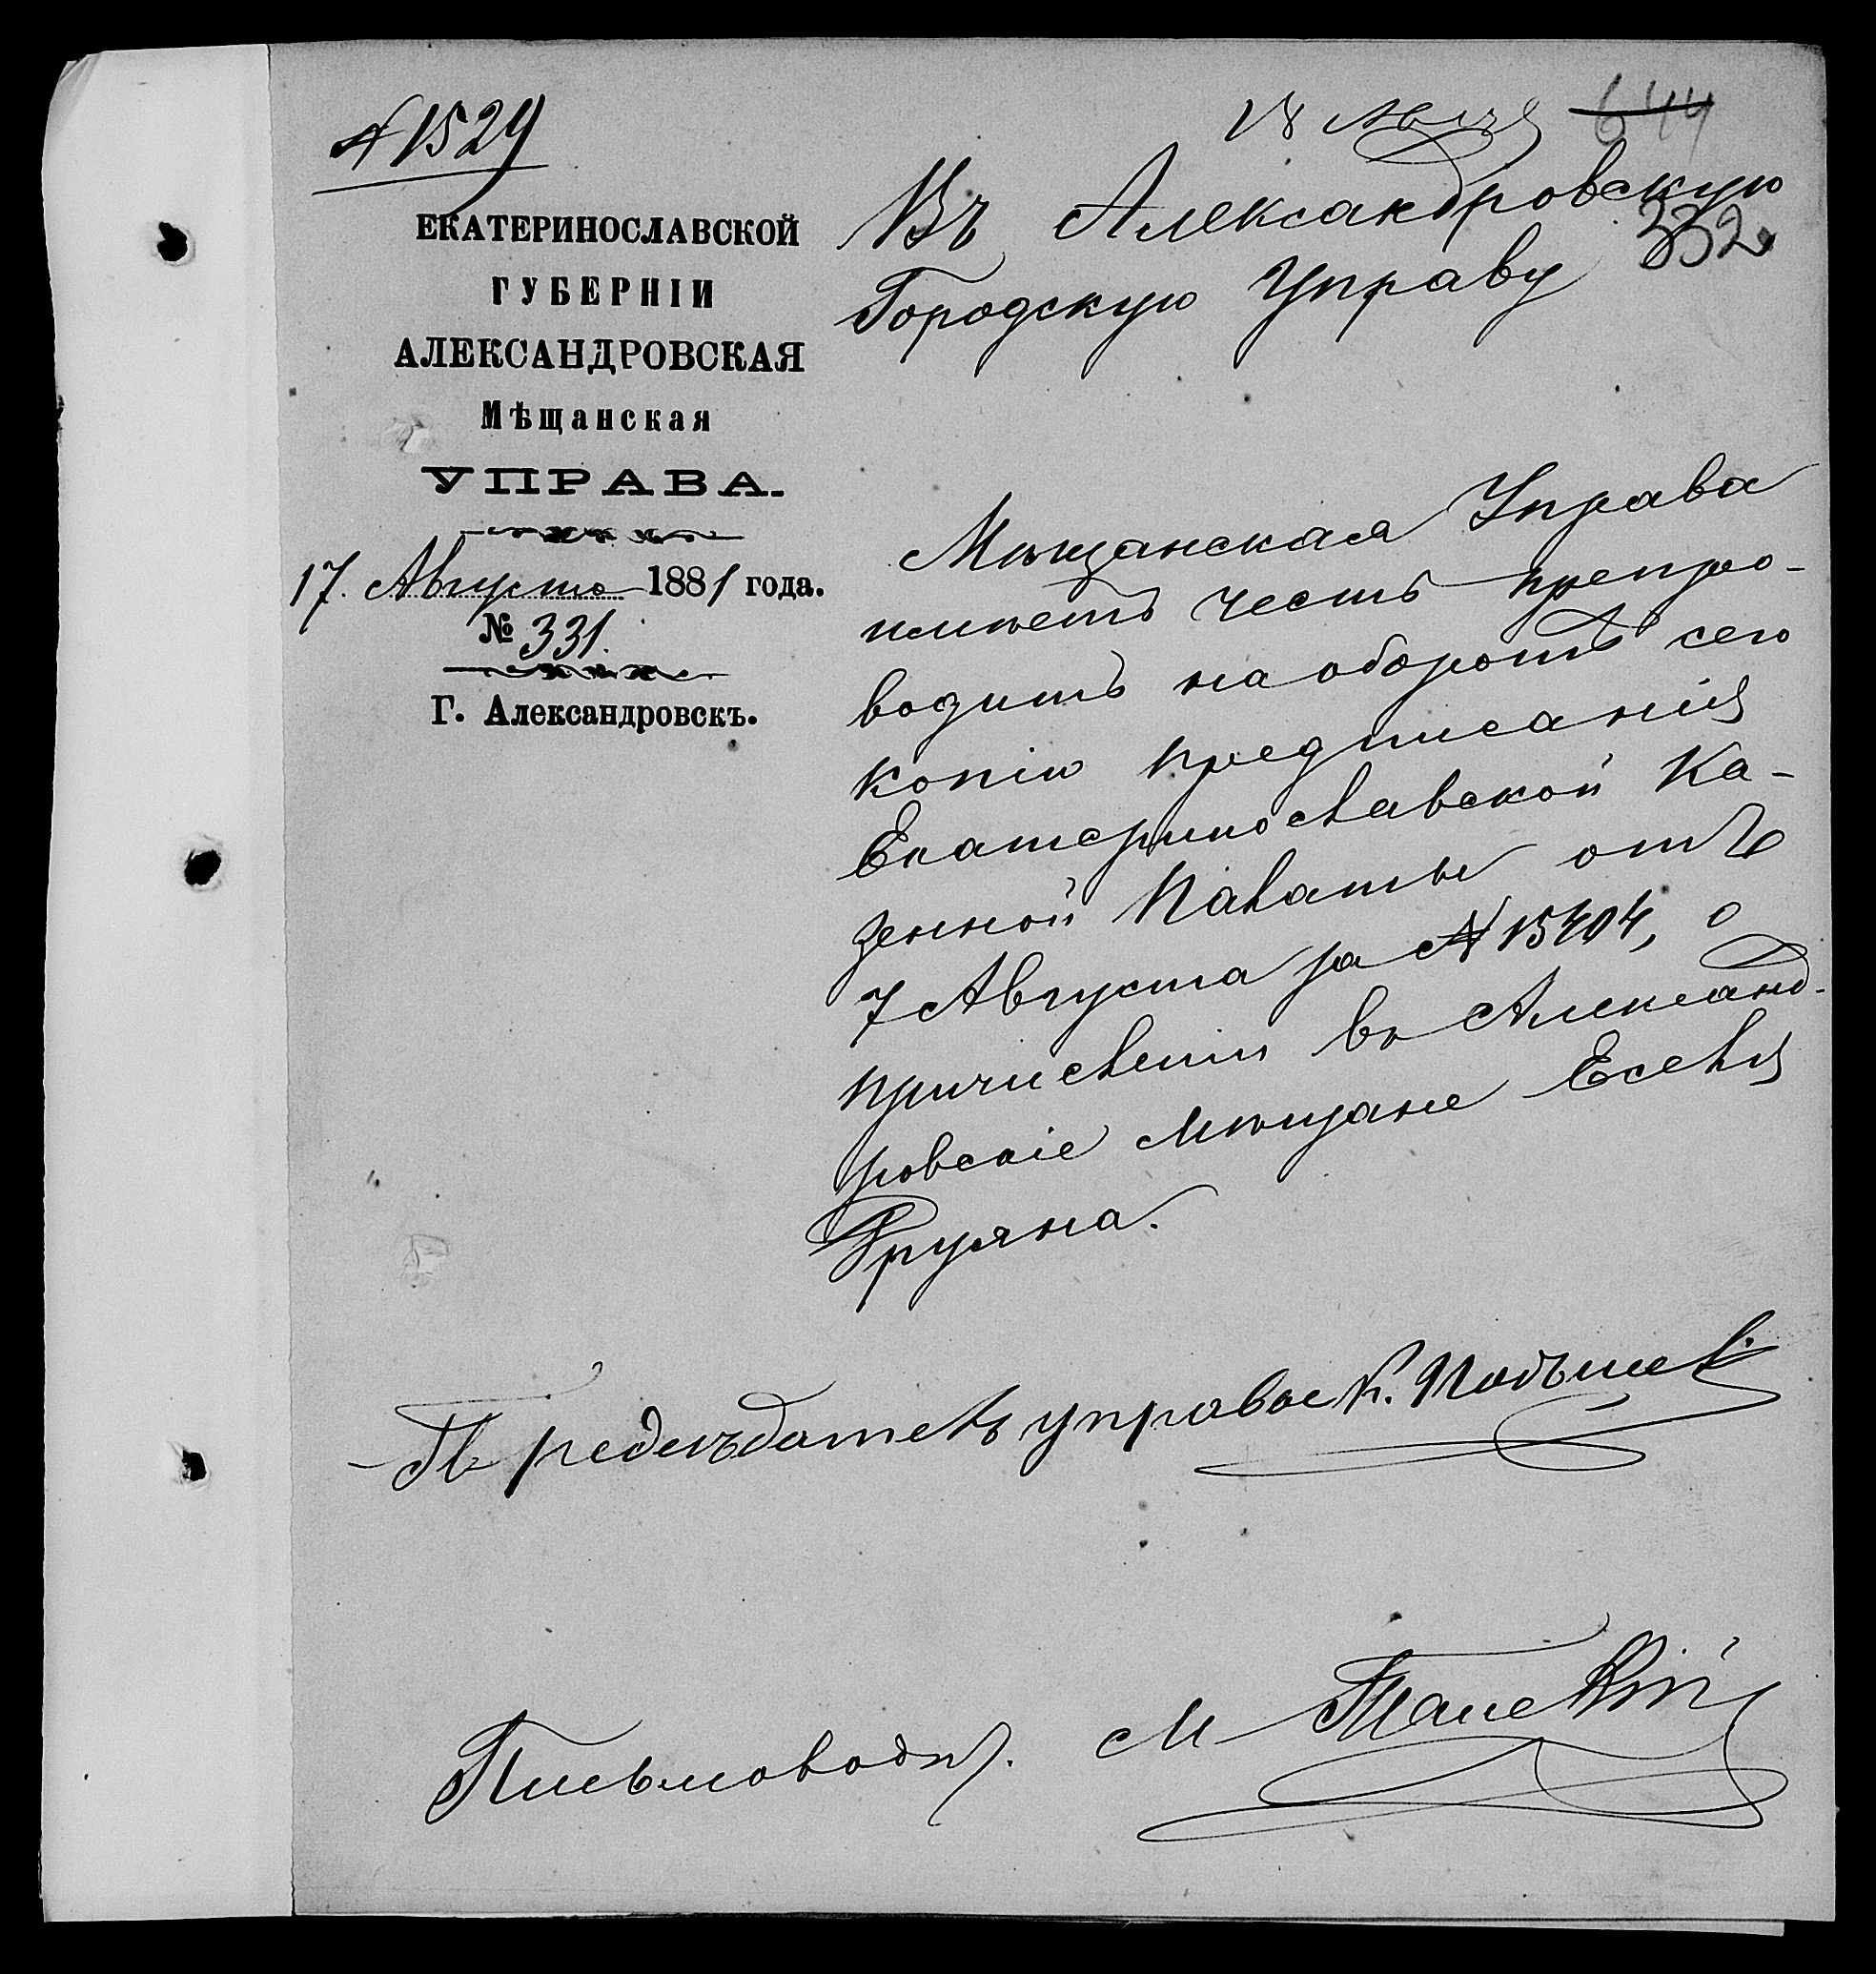 № 1529
18
644
Въ Александровскую
332
Городскую Управу
ЕКАТЕРИНОСЛАВСКОЙ
ГУБЕРНІИ
АЛЕКСАНДРОВСКАЯ
Мѣщанская
УПРАВА.
17. Августа 1881 года.
№ 331.
Г. Александровскъ.
Мѣщанская Управа
имѣетъ честь препро-
водить на оборотѣ сего
копію предписанія
Екатеринославской Ка-
зенной Палаты отъ
7 Августа за № 15404, о
причисленіи въ Александ-
ровскіе мѣщане Еселя
Предсѣдатель управы К.
Письмовод.
М